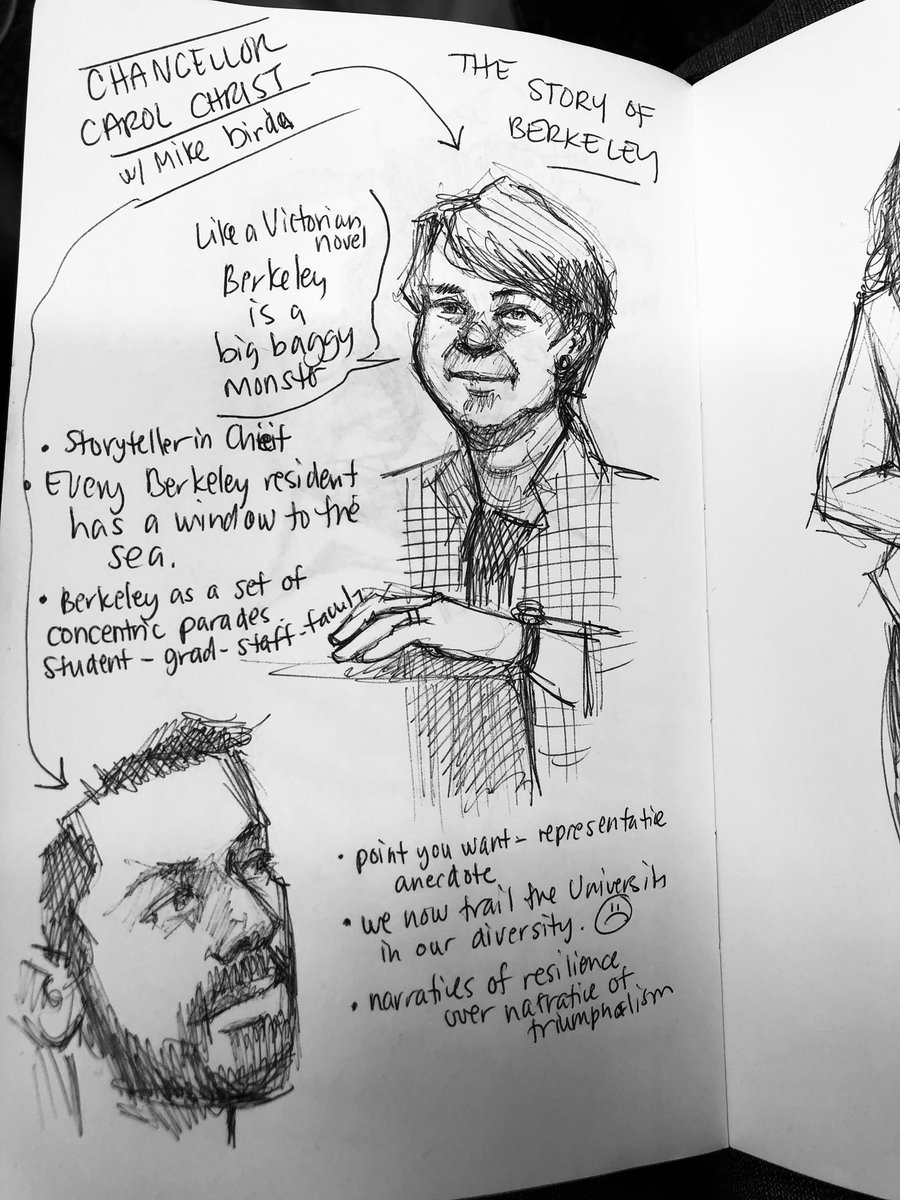 CHANCELLOR
CAROL CHRIST
w/ Mike
THE
STORY OF
BERKELEY
Like a Victorian
novel
Berkeley
is a
big baggy
monstr
• Storyteller in Chief
• Every Berkeley resident
has a window to the
sea.
• Berkeley as a set of
concentric parades.
Student – grad – staff – faculty
• point you want – representatie
anecdote
• we now trail the University
in our diversity.
• narraties of resilience
over narratie of
triumphalism